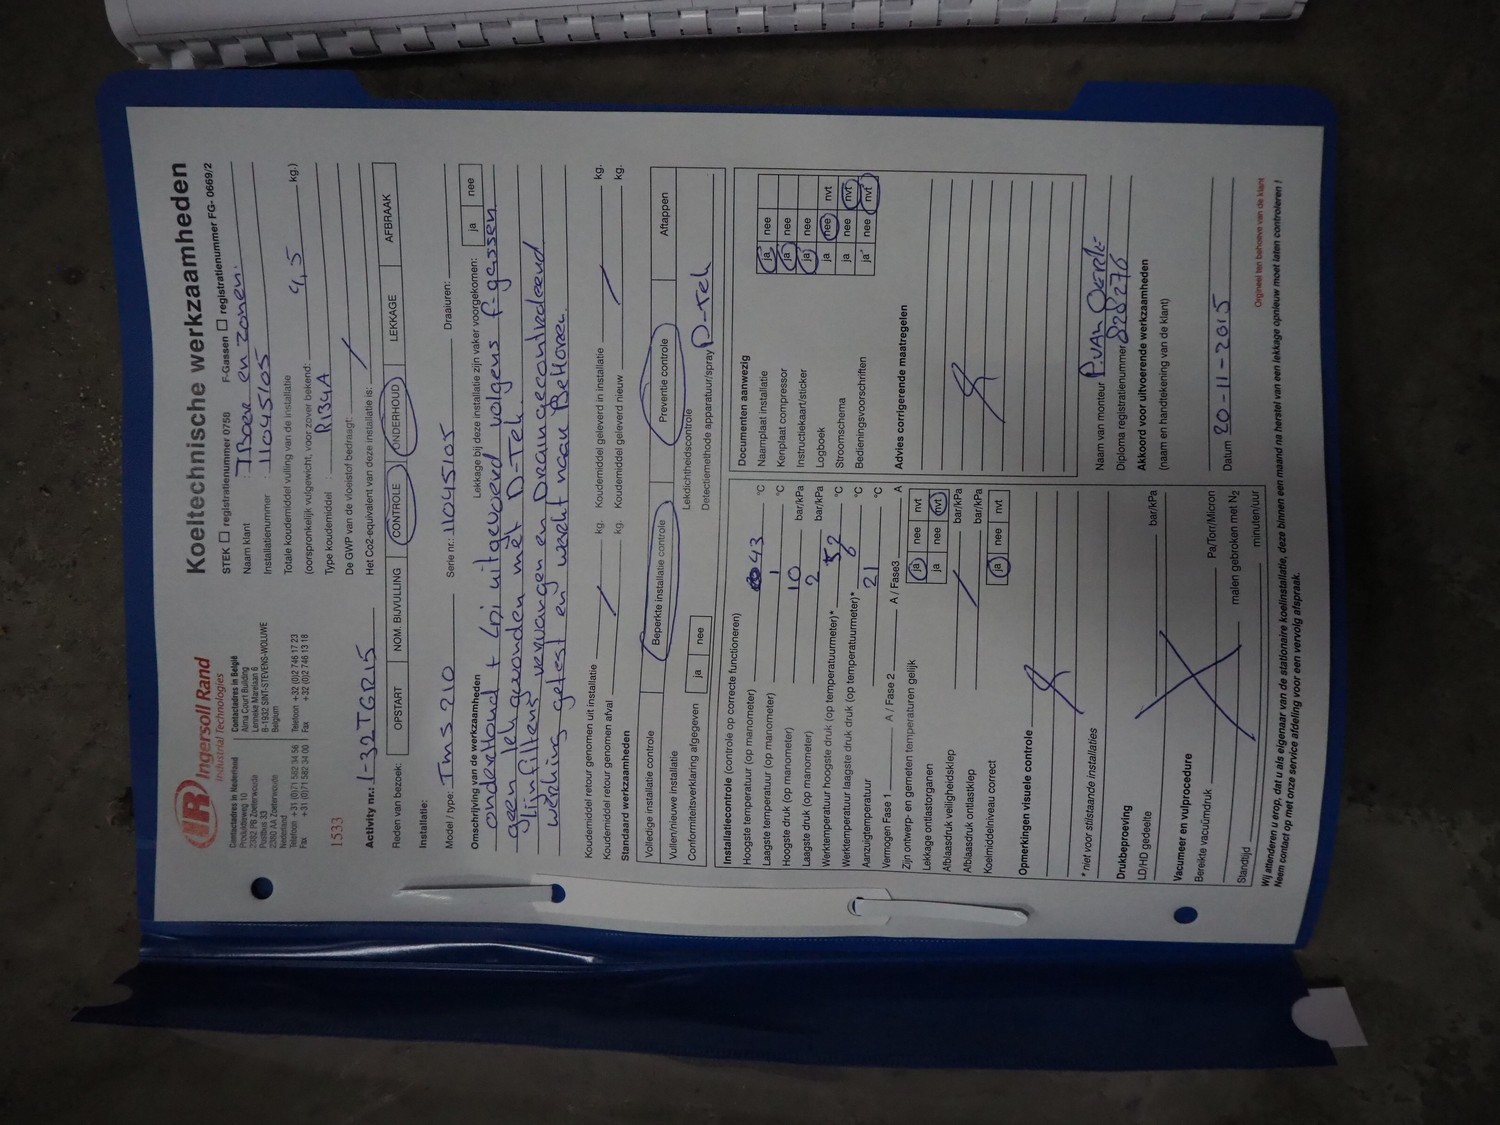 Ingersoll Rand
Industrial Technologies
Contactadres in Nederland
Produktieweg 10
2382 PB Zoeterwoude
Postbus 33
2380 AA Zoeterwoude
Nederland
Telefoon +31 (0)71 582 34 56
Fax +31 (0)71 582 34 00
Contactadres in België
Alma Court Building
Lenneke Marelaan 6
B-1932 SINT-STEVENS-WOLUWE
Belgium
Telefoon +32 (0)2 746 17 23
Fax +32 (0)2 746 13 18
1533
Activity nr.: 1-32TGR15
Koeltechnische werkzaamheden
STEK registratienummer 0758 F-Gassen registratienummer FG-0669/2
Naam klant : TBoer en zonen.
Installatienummer : 11045105
Totale koudemiddel vulling van de installatie
(oorspronkelijk vulgewicht, voor zover bekend: 4,5 kg.)
Type koudemiddel : R134A
De GWP van de vloeistof bedraagt:
Het Co2-equivalent van deze installatie is: /
Reden van bezoek: OPSTART NOM. BIJVULLING CONTROLE ONDERHOUD LEKKAGE AFBRAAK
Installatie:
Model / type: Tms 210 Serie nr.: 11045105 Draaiuren:
Omschrijving van de werkzaamheden Lekkage bij deze installatie zijn vaker voorgekomen: ja nee
onderhoud + Lpi uitgevoerd volgens f-gassen
geen lek gevonden met D-Tek.
lijnfilters vervangen en Drain gecontroleerd
werking getest en werkt naar Behoren.
Koudemiddel retour genomen uit installatie kg. Koudemiddel geleverd in installatie kg.
Koudemiddel retour genomen afval / kg. Koudemiddel geleverd nieuw / kg.
Standaard werkzaamheden
Volledige installatie controle Beperkte installatie controle Preventie controle Aftappen
Vullen/nieuwe installatie Lekdichtheidscontrole
Conformiteitsverklaring afgegeven ja nee Detectiemethode apparatuur/spray D-Tek
Installatiecontrole (controle op correcte functioneren)
Hoogste temperatuur (op manometer) 43 °C
Laagste temperatuur (op manometer) 1 °C
Hoogste druk (op manometer) 10 bar/kPa
Laagste druk (op manometer) 2 bar/kPa
Werktemperatuur hoogste druk (op temperatuurmeter)* °C
Werktemperatuur laagste druk druk (op temperatuurmeter)* °C
Aanzuigtemperatuur 21 °C
Vermogen Fase 1 A / Fase 2 A / Fase3 A
Zijn ontwerp- en gemeten temperaturen gelijk ja nee nvt
Lekkage ontlastorganen ja nee nvt
Afblaasdruk veiligheidsklep bar/kPa
Afblaasdruk ontlastklep / bar/kPa
Koelmiddelniveau correct ja nee nvt
Opmerkingen visuele controle
* niet voor stilstaande installaties
Drukbeproeving
LD/HD gedeelte bar/kPa
Vacumeer en vulprocedure
Bereikte vacuümdruk Pa/Torr/Micron
malen gebroken met N2
Standtijd minuten/uur
Documenten aanwezig
Naamplaat installatie ja nee
Kenplaat compressor ja nee
Instructiekaart/sticker ja nee
Logboek ja nee nvt
Stroomschema ja nee nvt
Bedieningsvoorschriften ja nee nvt
Advies corrigerende maatregelen
Naam van monteur P.van Oerle
Diploma registratienummer 828276
Akkoord voor uitvoerende werkzaamheden
(naam en handtekening van de klant)
Datum 20-11-2015
Orgineel ten behoeve van de klant
Wij attenderen u erop, dat u als eigenaar van de stationaire koelinstallatie, deze binnen een maand na herstel van een lekkage opnieuw moet laten controleren !
Neem contact op met onze service afdeling voor een vervolg afspraak.